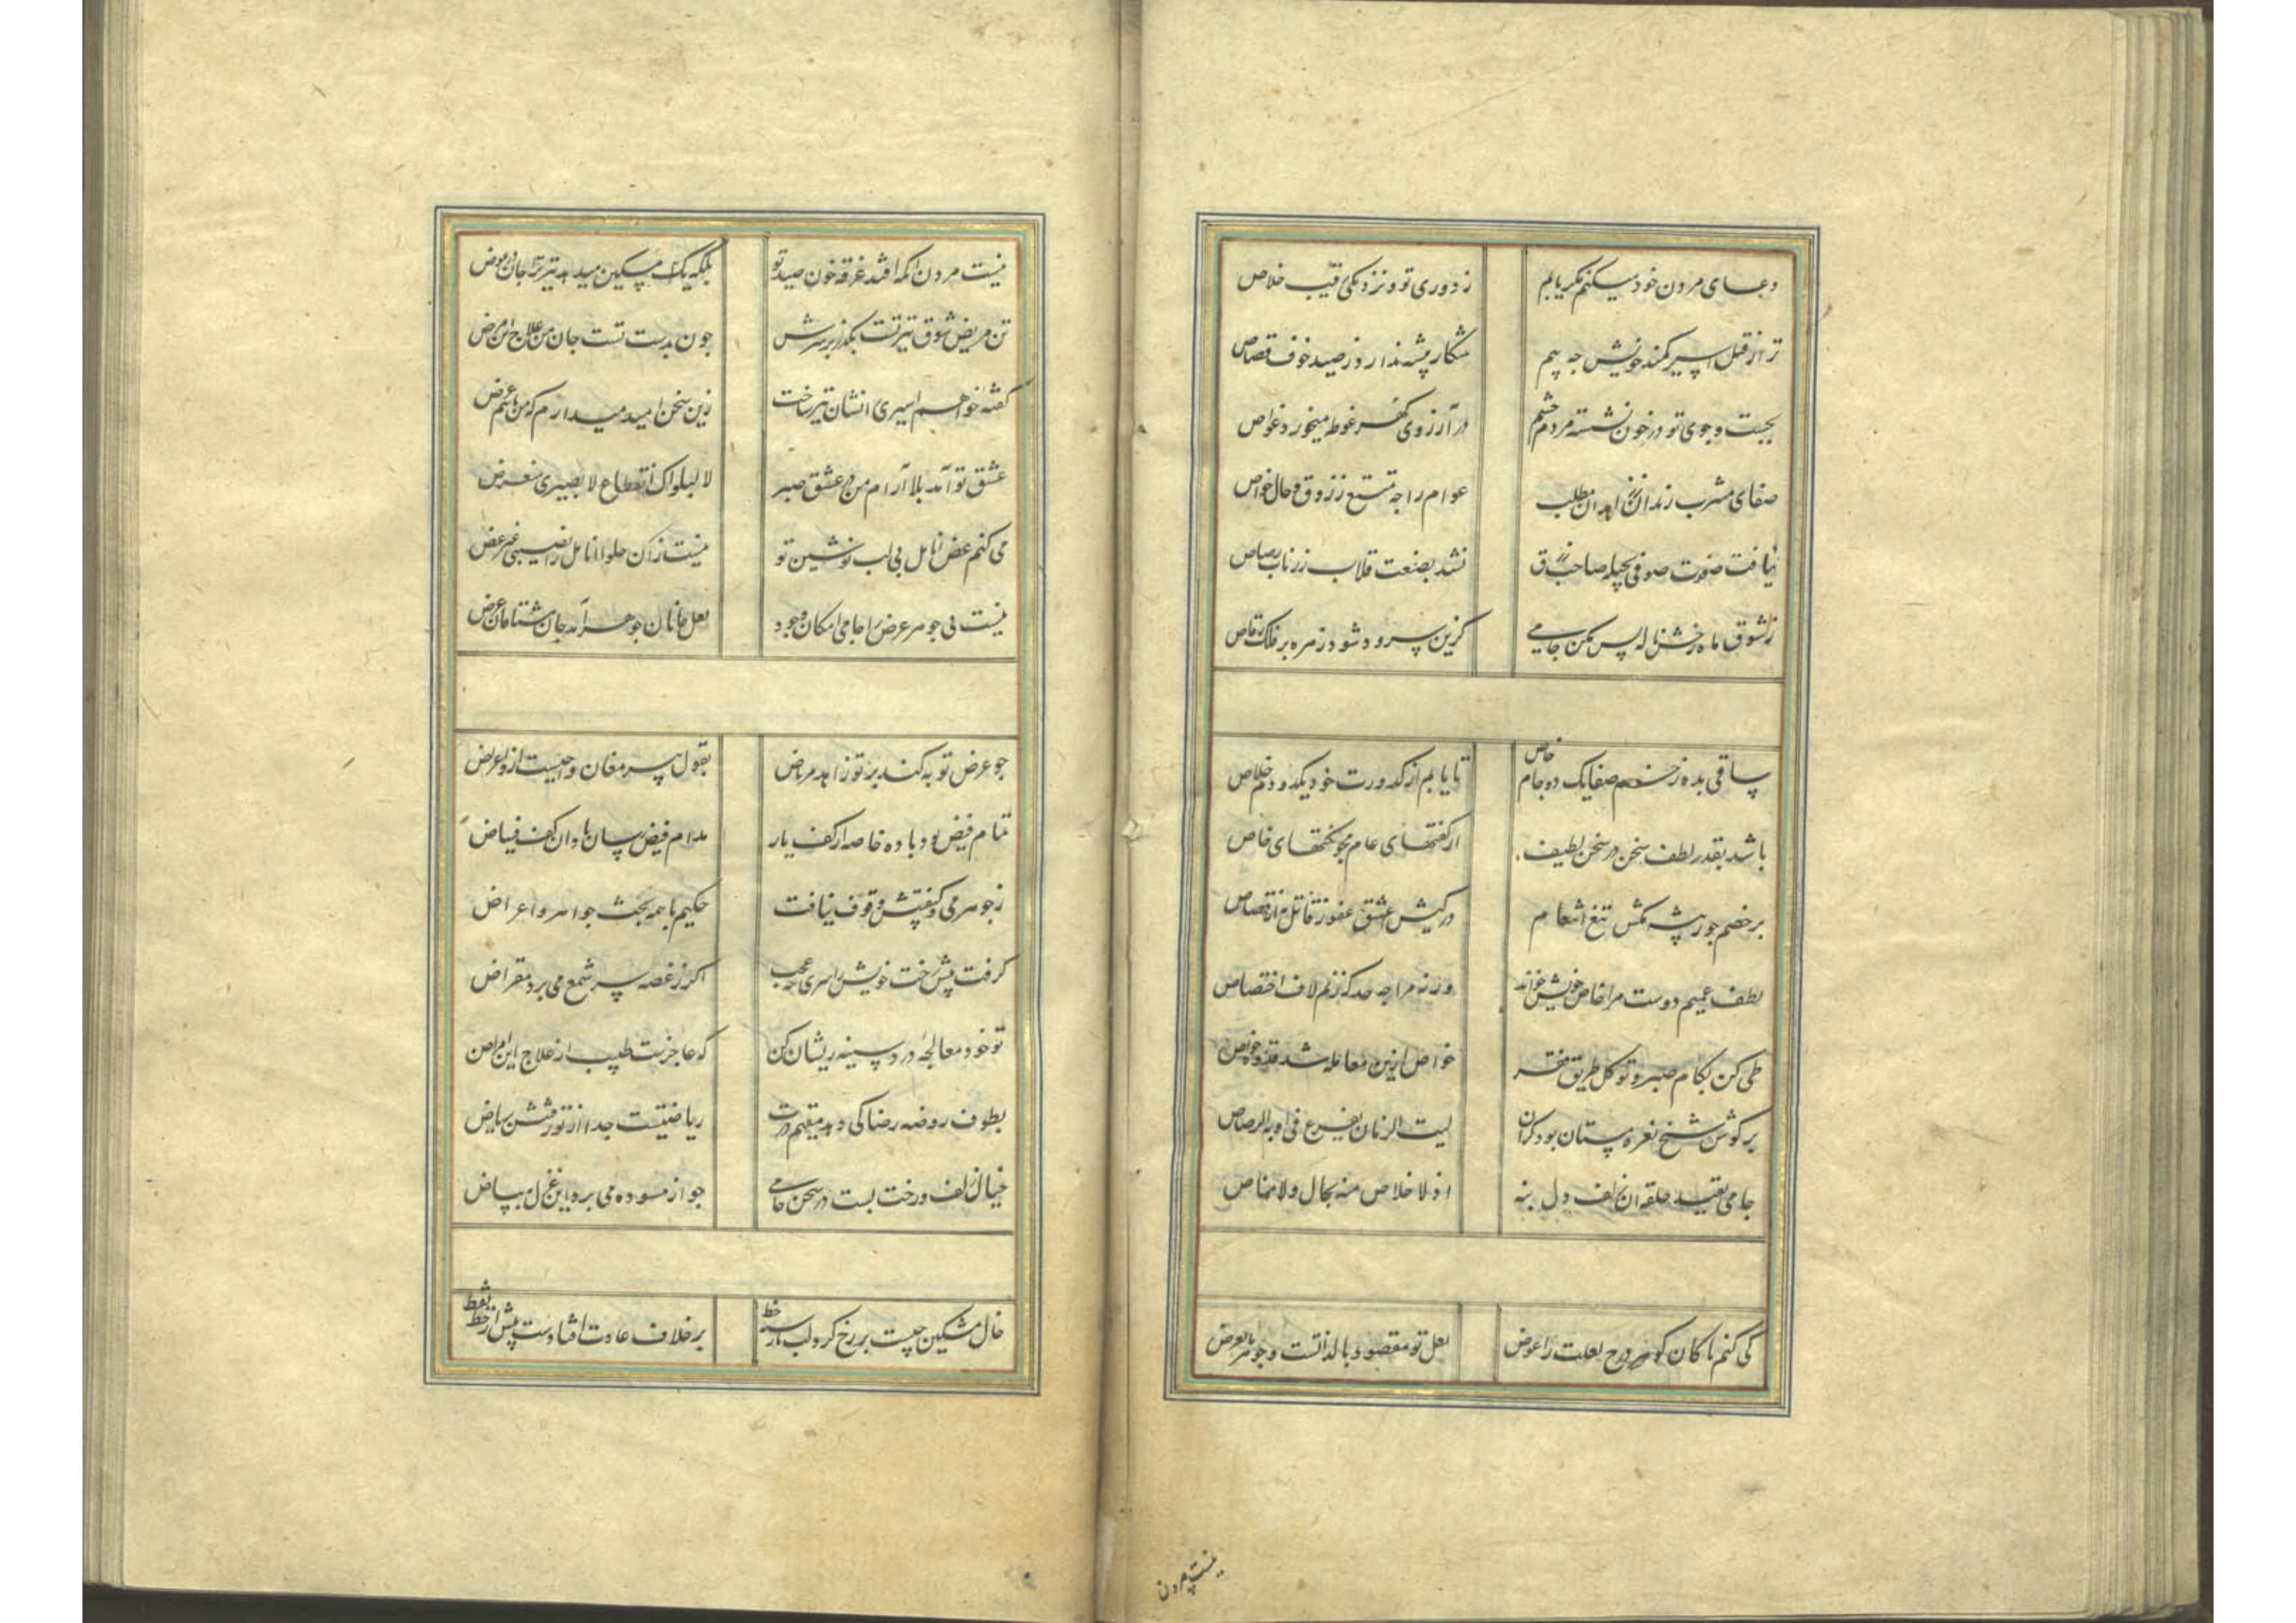 دعای مردن خود میکنم مکر یابم ز دوری تو و نزدیکی رقیب خلاص
ترا ز قتل اسیر کمند خویش چه بیم شکار پیشه ندارد ز صید خوف قصاص
بجست و جوی تو در خون نشسته مردم چشم در آرزوی کهر غوطه میخورد غواص
صفای مشرب رندان ز زاهدان مطلب عوام را چه تمتع ز ذوق و حال خواص
نیافت صفوت صوفی بحیله صاحب زرق نشد بصنعت قلاب زر ناب رصاص
ز شوق ماه رخش ناله بس مکن جامی کزین سرود شود زهره بر فلک رقاص
ساقی بده ز خم صفا یک دو جام خاص تا یابم از کدورت خود یکدو دم خلاص
باشد بقدر لطف سخن در سخن لطیف از کفتهای عام مجو نکتهای خاص
بر خصم جور پیشه مکش تیغ انتقام در کیش عشق عفو ز قاتل به از قصاص
لطف عمیم دوست مرا خاص خویش خواند ورنه مرا چه حد که زنم لاف اختصاص
طی کن بکام صبر و توکل طریق فقر خواص ازین معامله شد قدوه خواص
بر کوش شیخ نعره مستان بود کران لیت الزمان یفرغ فی اذنه الرصاص
جامی بقید حلقه آن زلف دل بنه اذ لا خلاص منه بحال ولا مناص
کی کنم با کان کوهر درج لعلت را عوض لعل تو مقصود بالذاتست و جوهر بالعرض
نیست مردن
نیست مردن آنکه افتد غرقه خون صید تو بلکه یک مسکین میدهد تیر ترا جان در عوض
تن مریض شوق تیرتست بکذر بر سرش چون بدست تست جان من علاج این مرض
کفته خواهم اسیری را نشان تیر ساخت زین سخن امید میدارم که من باشم غرض
عشق تو آمد بلا آرام من در عشق صبر لا لبلواک انقطاع لا لصبری منقرض
می کنم عض انامل بی لب نوشین تو نیست زان حلوا انامل را نصیبی غیر عض
نیست بی جوهر عرض را جامی امکان وجود لعل جانان جوهر آمد جان مشتاقان عرض
چو عرض توبه کند بر تو زاهد مرتاض بقول پیر مغان واجبست ازو اعراض
تمام فیض بود باده خاصه از کف یار مدام فیض رسان باد آن کف فیاض
ز جوهر می و کیفیتش وقوف نیافت حکیم با همه بحث جواهر و اعراض
کرفت پیش رخت خویش را سری چه عجب اکر ز غصه سر شمع می برد مقراض
تو خود معالجه درد سینه ریشان کن که عاجزست طبیب از علاج این امراض
بطوف روضه رضا کی دهد مقیم درت ریاضتیست جدا از تو کشت ریاض
خیال زلف و رخت بست در سخن جامی چو از مسوده می برد این غزل ببیاض
خال مشکین چیست بر رخ کرد لب نارسته خط بر خلاف عادت افتادست پیش از خط نقط